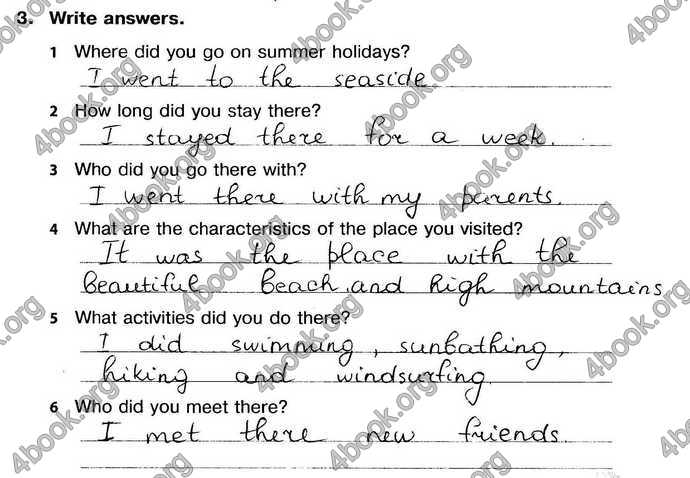 3. Write answers.
1 Where did you go on summer holidays?
I went to the seaside
2 How long did you stay there?
I stayed there for a week.
3 Who did you go there with?
I went there with my parents.
4 What are the characteristics of the place you visited?
It was the place with the
beautiful beach and high mountains
5 What activities did you do there?
I did swimming, sunbathing,
hiking and windsurfing.
6 Who did you meet there?
I met there new friends.
4book.org
4book.org
4book.org
4book.org
4book.org
4book.org
4book.org
4book.org
4book.org
4book.org